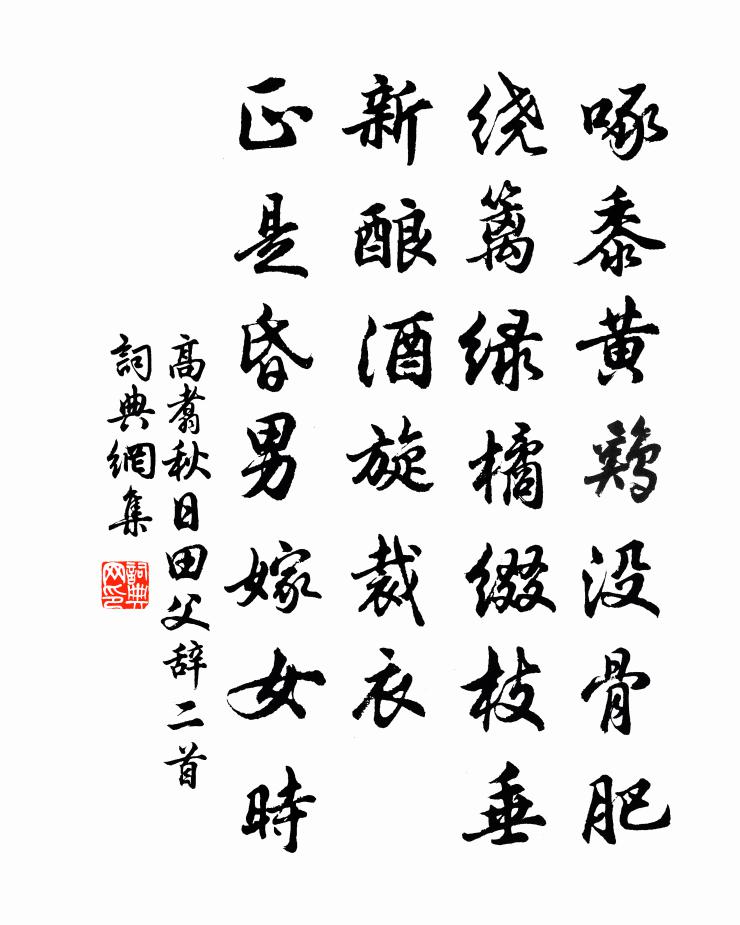 啄黍黄鷄没骨肥
绕篱绿橘缀枝垂
新酿酒旋裁衣
正是昏男嫁女時
高翥秋日田父辞二首
詞典網集
詞典网印